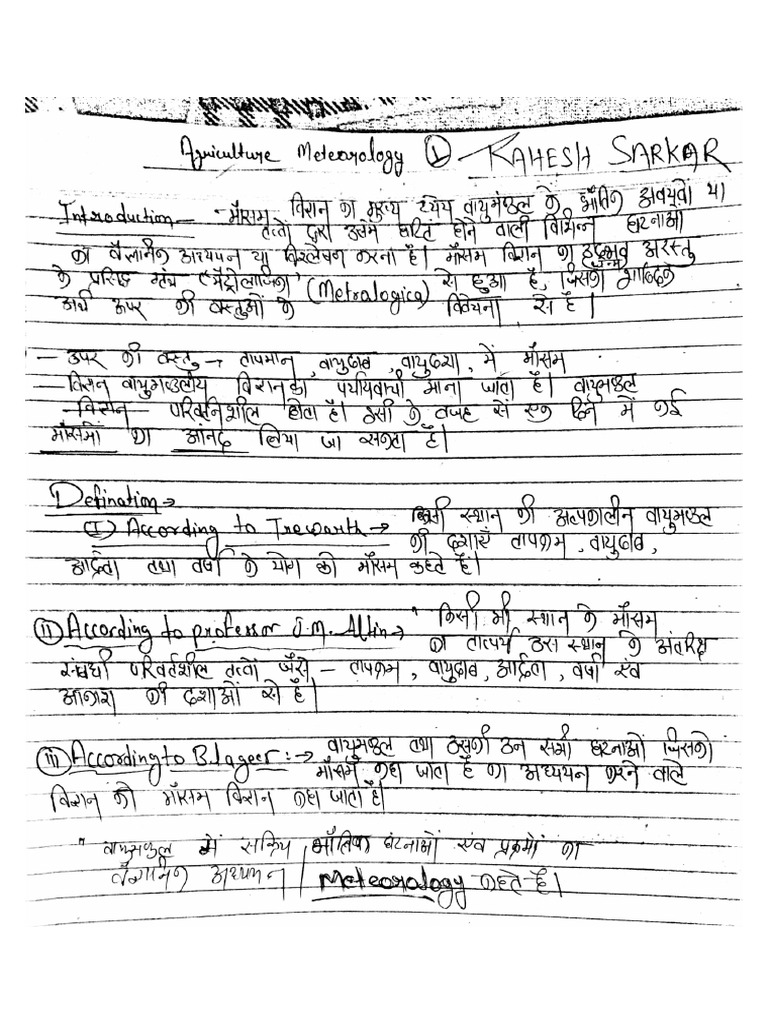 Agriculture Meteorology ① RAHESH SARKAR
Introduction — मौसम विज्ञान का मुख्य ध्येय वायुमंडल के भौतिक अवयवों या
तत्वों द्वारा उसमें घटित होने वाली विभिन्न घटनाओं
का वैज्ञानिक अध्ययन या विश्लेषण करना है। मौसम विज्ञान का उद्भव अरस्तु
के प्रसिद्ध ग्रंथ (Metralogica) से हुआ है, जिसका शाब्दिक
अर्थ ऊपर की वस्तुओं के विवेचना से है।
— ऊपर की वस्तु → तापमान, वायुदाब, वायुदशा, में मौसम
— विज्ञान वायुमण्डलीय विज्ञान का पर्यायवाची माना जाता है। वायुमण्डल
— विज्ञान — परिवर्तनशील होता है। इसी के वजह से एक दिन में कई
मौसमों का आनंद लिया जा सकता है।
Defination →
(I) According to Trewarth → किसी स्थान की अल्पकालीन वायुमण्डल
की दशाएँ तापक्रम, वायुदाब,
आर्द्रता तथा वर्षा के योग को मौसम कहते हैं।
(ii) According to professor J.M. Allin → " किसी भी स्थान के मौसम
का तात्पर्य उस स्थान के अंतरिक्ष
संबंधी परिवर्तशील तत्वों जैसे — तापक्रम, वायुदाब, आर्द्रता, वर्षा एवं
आकाश की दशाओं से है।
(iii) According to B. lageer :→ वायुमण्डल तथा उसकी उन सभी घटनाओं जिसको
मौसम कहा जाता है का अध्ययन करने वाले
विज्ञान को मौसम विज्ञान कहा जाता है।
" वायुमण्डल में सक्रिय भौतिक घटनाओं एंव प्रक्रमों का
वैज्ञानिक अध्ययन Meteorology कहते है।